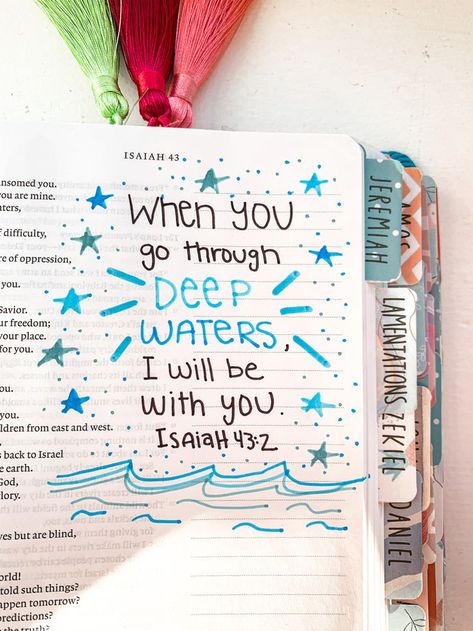 ISAIAH 43
When you
go through
DEEP
WATERS,
I will be
with you.
ISAIAH 43:2
ansomed you.
you are mine.
aters,
of difficulty,
re of oppression,
Savior.
ur freedom;
your place.
for you.
you.
you.
ildren from east and west.
s back to Israel
e earth.
God,
lory.
yes but are blind,
orld!
told such things?
appen tomorrow?
predictions?
the truth?
JEREMIAH
LAMENTATIONS
EZEKIEL
DANIEL